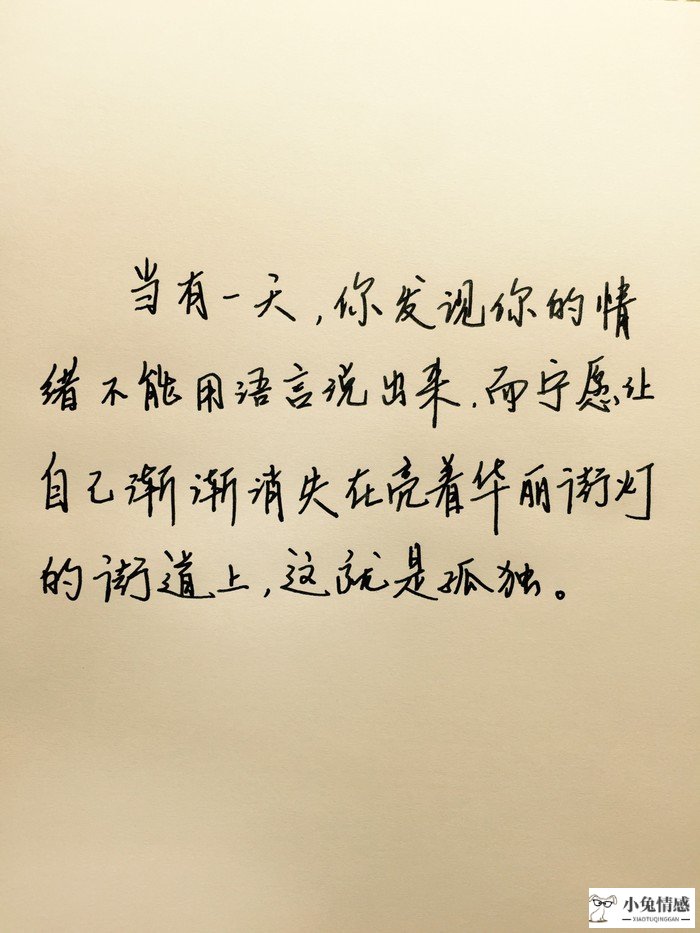 当有一天,你发现你的情
绪不能用语言说出来,而宁愿让
自己渐渐消失在亮着华丽街灯
的街道上,这就是孤独。
小兔情感
XIAOTUQINGGAN